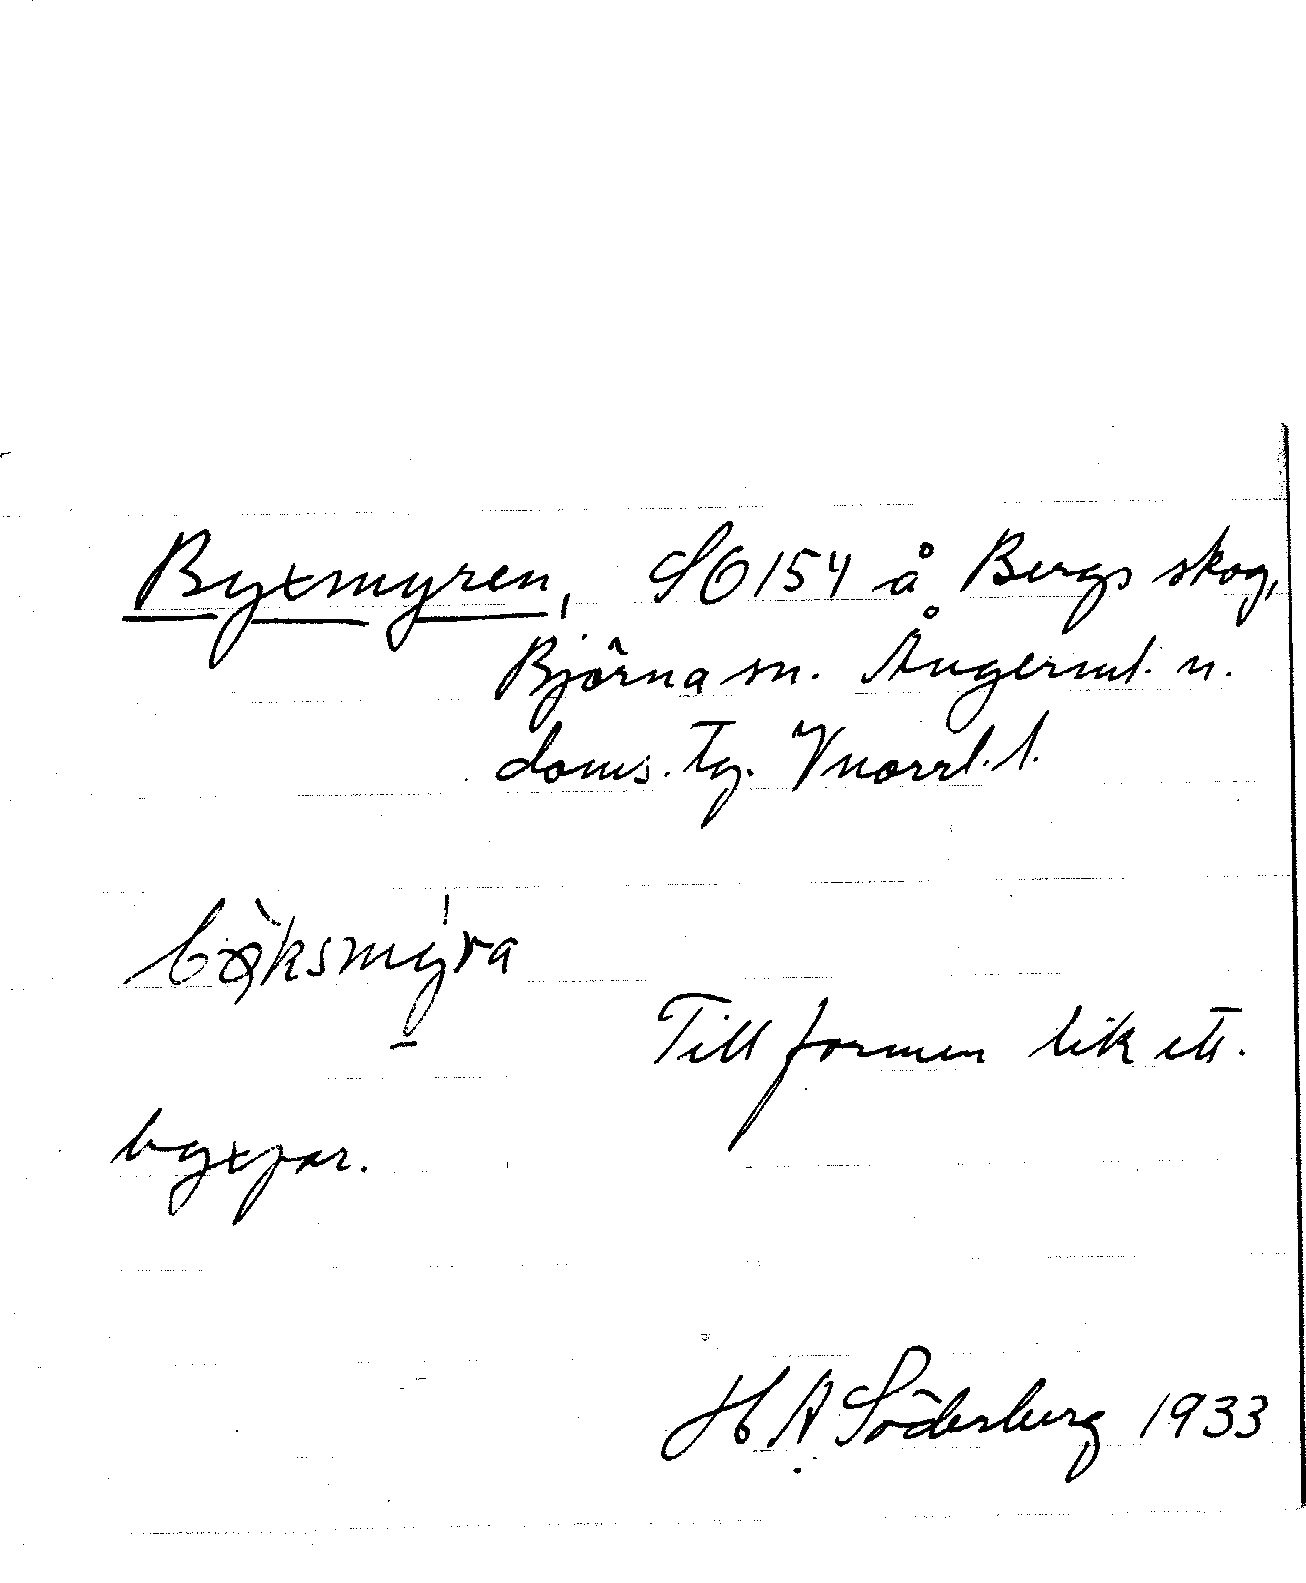 Byxmyren, SO 154 å Bergs skog,
Björna sn. Ångerml. n.
doms. tg. Vnorrl. l.
Till formen lik ett.
byxpar.
H A Söderberg 1933